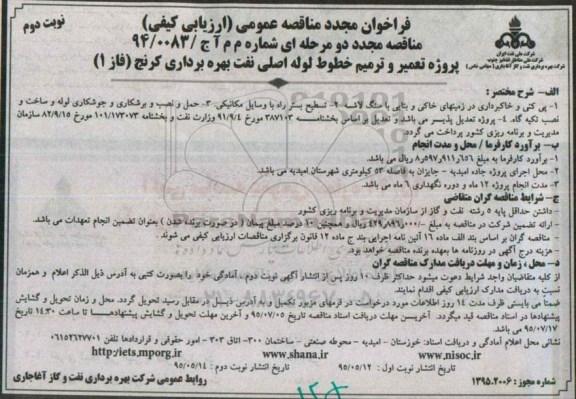 نوبت دوم
فراخوان مجدد مناقصه عمومی (ارزیابی کیفی)
مناقصه مجدد دو مرحله ای شماره م م آ ج / ۹۴/۰۰۸۳
پروژه تعمیر و ترمیم خطوط لوله اصلی نفت بهره برداری کرنج (فاز ۱)
شرکت ملی نفت ایران
شرکت ملی مناطق نفتخیز جنوب
شرکت بهره برداری نفت و گاز آغاجاری (سهامی خاص)
الف- شرح مختصر :
۱- پی کنی و خاکبرداری در زمینهای خاکی و بنایی با سنگ لاشه ۲- تسطیح بستر راه با وسایل مکانیکی ۳- حمل و نصب و برشکاری و جوشکاری لوله و ساخت و
نصب تکیه گاه. ۴- پروژه تعدیل پذیر می باشد و تعدیل بر اساس بخشنامه ۳۸۷۱۰۳ مورخ ۹۱/۹/۴ وزارت نفت و بخشنامه ۱۰۱/۱۷۳۰۷۳ مورخ ۸۲/۹/۱۵ سازمان
مدیریت و برنامه ریزی کشور پرداخت می گردد.
ب- برآورد کارفرما / محل و مدت انجام
۱- برآورد کارفرما به مبلغ ریال می باشد.
۲- محل اجرای پروژه جاده امیدیه - جایزان به فاصله ۵۳ کیلومتری شهرستان امیدیه می باشد.
۳- مدت انجام پروژه ۱۲ ماه و دوره نگهداری ۶ ماه می باشد.
ج- شرایط مناقصه گران متقاضی
- داشتن حداقل پایه ۵ رشته نفت و گاز از سازمان مدیریت و برنامه ریزی کشور
- ارائه تضمین شرکت در مناقصه به مبلغ ریال و همچنین ۱۰ درصد مبلغ پیمان (در صورت برنده شدن) بعنوان تضمین انجام تعهدات می باشد.
- مناقصه گران بر اساس بند الف ماده ۱۶ آئین نامه اجرایی بند ج ماده ۱۲ قانون برگزاری مناقصات ارزیابی کیفی می شوند.
- هزینه درج آگهی در روزنامه ها بعهده برنده مناقصه خواهد بود.
د- محل ، زمان و مهلت دریافت مدارک مناقصه گران
از کلیه متقاضیان واجد شرایط دعوت میشود حداکثر ظرف ۱۰ روز پس از انتشار آگهی نوبت دوم ، آمادگی خود را بصورت کتبی به آدرس ذیل الذکر اعلام و همزمان
نسبت به دریافت مدارک ارزیابی کیفی اقدام نمایند.
ضمنا می بایستی ظرف مدت ۱۴ روز اطلاعات مورد درخواست در فرمهای مزبور تکمیل و به آدرس ذیل در مقابل رسید تحویل گردد. محل و زمان تحویل و گشایش
پیشنهادها در اسناد مناقصه قید میگردد. آخرین مهلت دریافت اسناد مناقصه تاریخ ۹۵/۰۷/۰۵ و تحویل و گشایش پیشنهادات تا ساعت ۱۴:۳۰ تاریخ
۹۵/۰۷/۱۷ می باشد.
نشانی محل اعلام آمادگی و دریافت اسناد: خوزستان - امیدیه - محوطه صنعتی - ساختمان ۳۰۰- اتاق ۳۰۳ - امور حقوقی و قراردادها تلفن ۰۶۱۵۲۶۲۷۷۰۱
www.nisoc.ir www.shana.ir http://iets.mporg.ir
تاریخ انتشار نوبت اول : ۹۵/۰۵/۱۲ تاریخ انتشار نوبت دوم : ۹۵/۰۵/۱۴
شماره مجوز : ۱۳۹۵.۲۰۰۶
روابط عمومی شرکت بهره برداری نفت و گاز آغاجاری